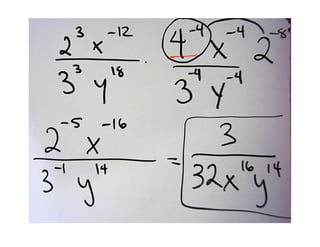 2³ x⁻¹² / 3³ y¹⁸ · 4⁻⁴ x⁻⁴ 2⁻⁸ / 3⁻⁴ y⁻⁴
2⁻⁵ x⁻¹⁶ / 3⁻¹ y¹⁴ = 3 / 32x¹⁶y¹⁴